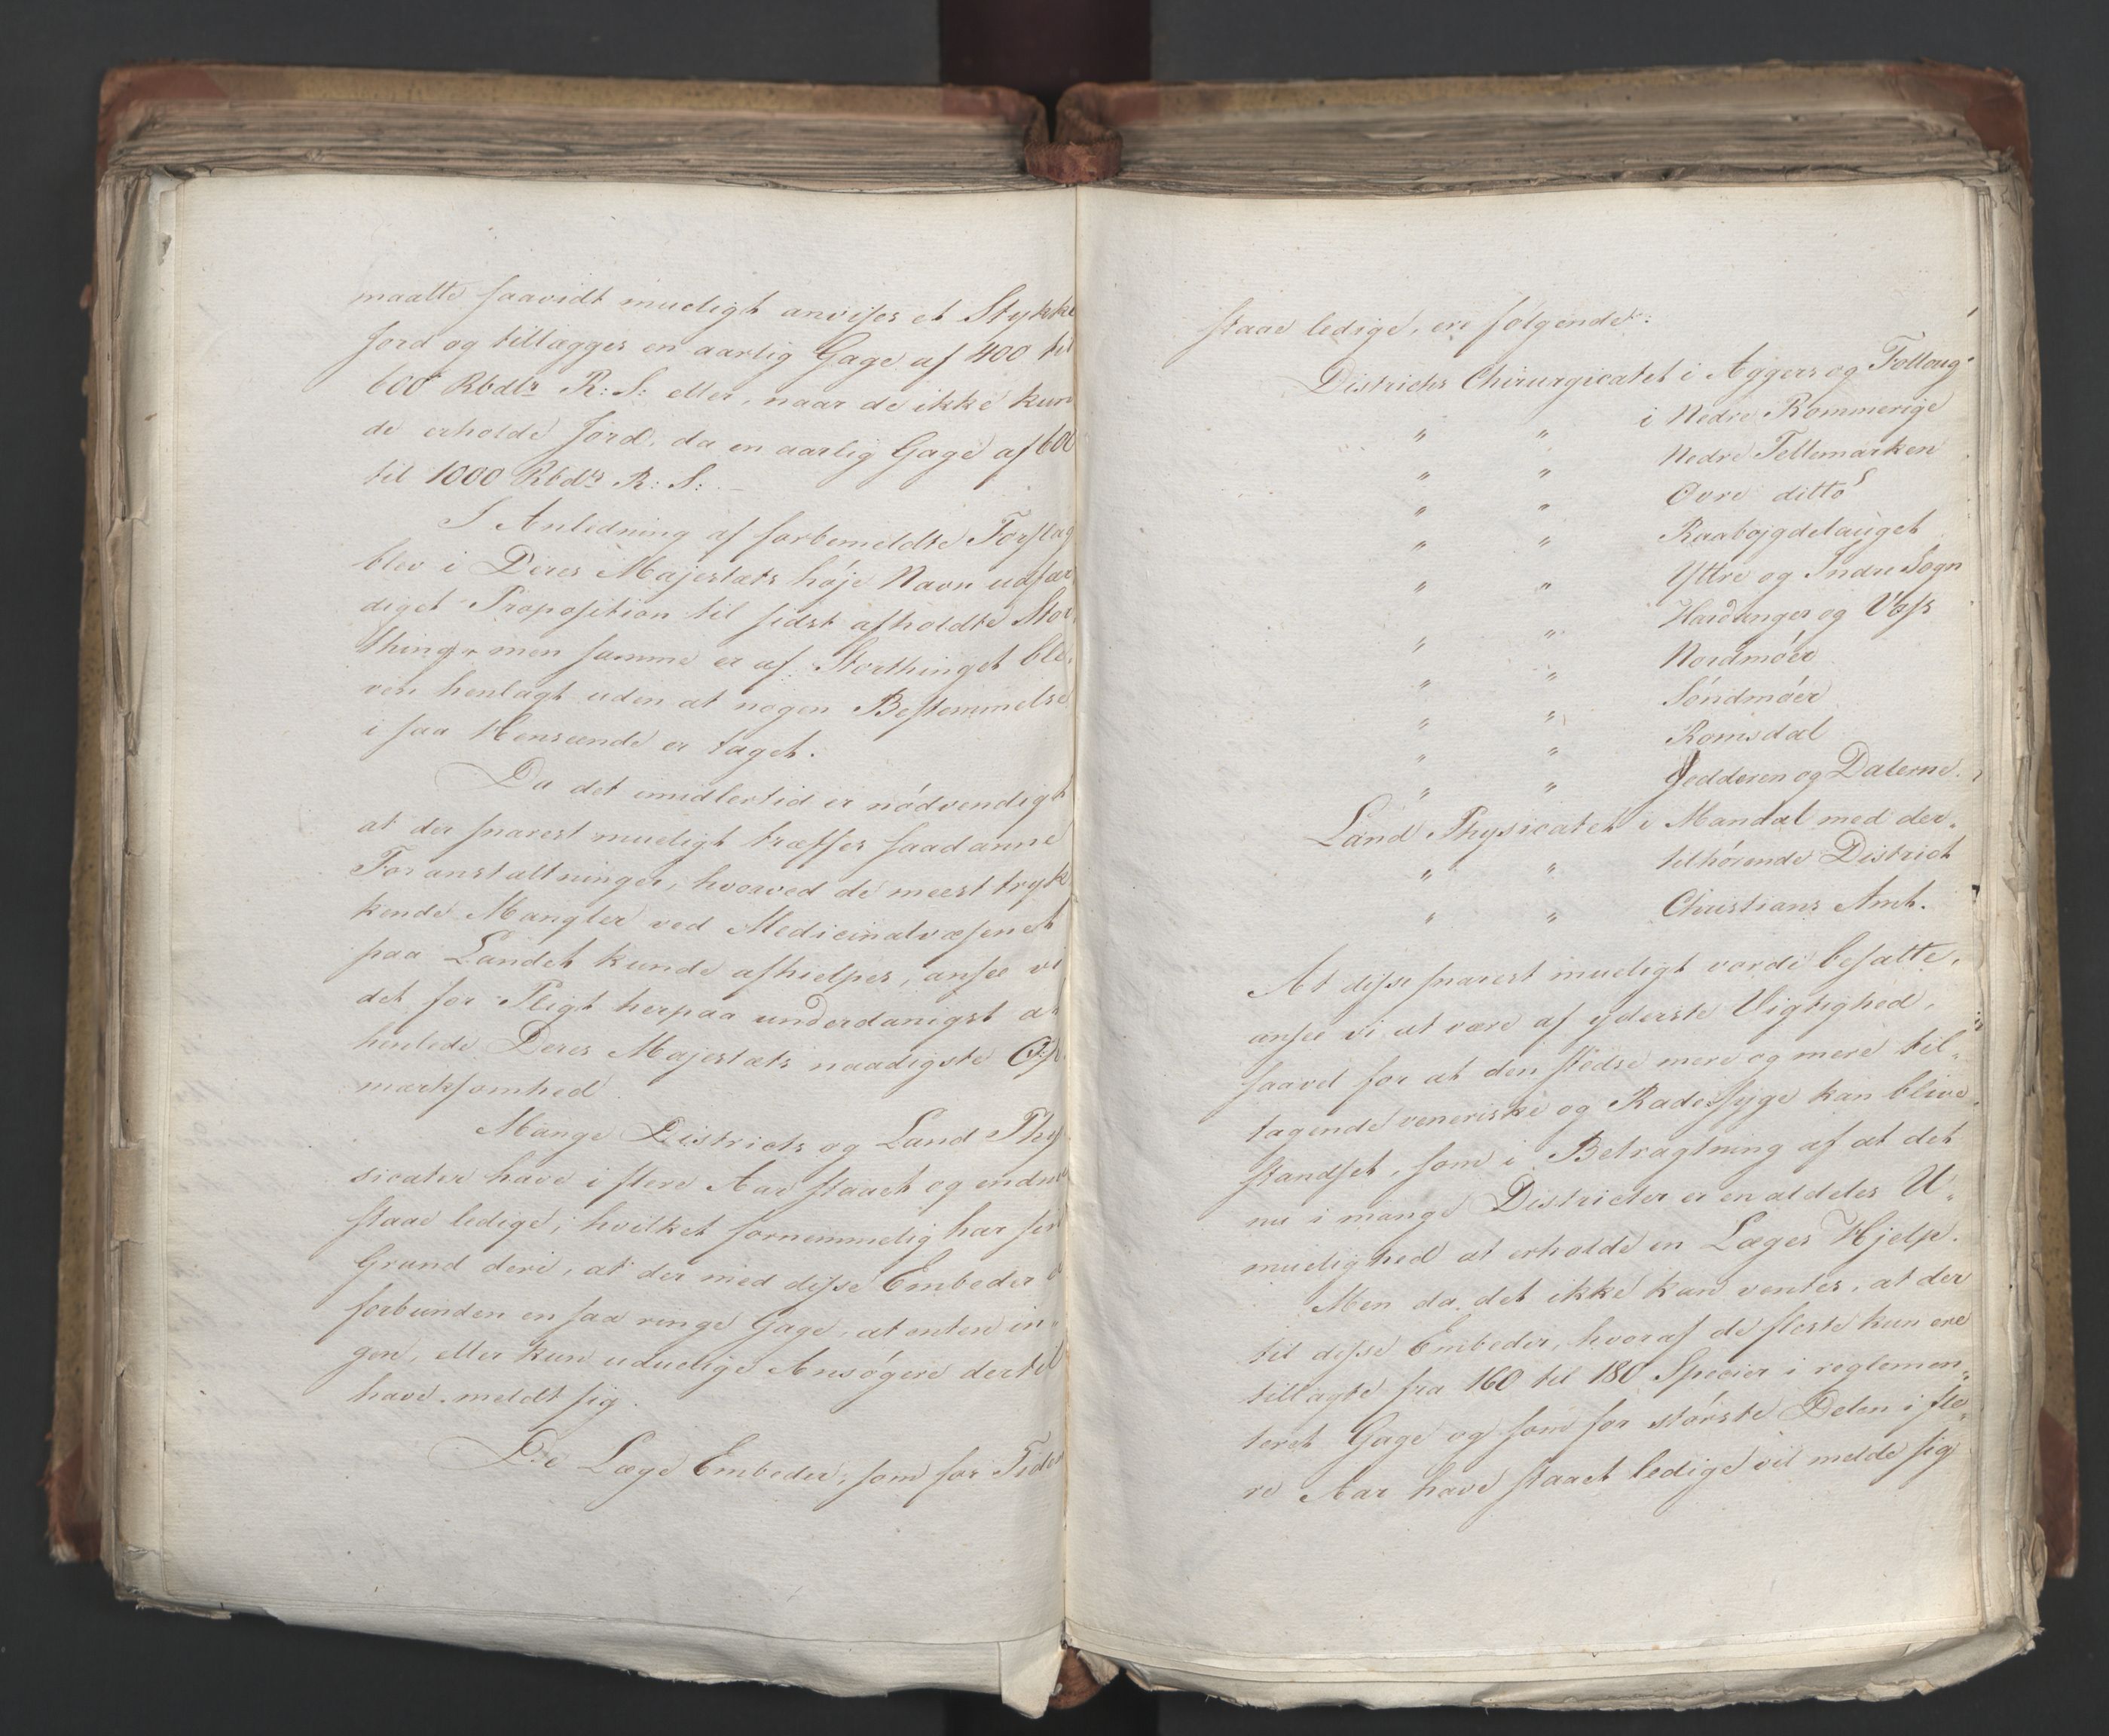 maatte saavidt mueligt anvises et Stykke
Jord og tillægges en aarlig Gage af 400 til
600 Rbdlr R: S: eller, naar de ikke kun
de erholde Jord, da en aarlig Gage af 600
til 1000 Rbdlr R: S:
I Anledning af forbemeldte Forslag
blev i Deres Majestæts høje Navn udfær
diget Proposition til sidst afholdte Stor
thing, men samme er af Storthinget ble-
ven henlagt uden at nogen Bestemmelse
i saa Henseende er taget.
Da det imidlertid er nødvendigt
at der snarest mueligt træffes saadanne
Foranstaltninger, hvorved de meest tryk
kende Mangler ved Medicinalvæsenet
paa Landet kunde afhielpes, ansee vi
det for Pligt herpaa underdanigst at
henlede Deres Majestæts naadigste Op-
mærksomhed.
Mange Districts og Land Phy
sicater have i flere Aar staaet og endnu
staae ledige, hvilket fornemmelig har sin
Grund deri, at der med disse Embeder e
forbunden en saa ringe Gage, at enten in-
gen, eller kun uduelige Ansøgere dertil
have meldt sig.
De Læge Embeder, som for Tiden
staae ledige, ere følgende:
Districts Chirurgicatet i Aggers og Folloug
" " i Nedre Rommerige
" " Nedre Tellemarken
" " Øvre ditto
" " Raabøjgdelauget
" " Yttre og Indre Sogn
" " Hardanger og Voss
" " Nordmøer
" " Søndmøer
" " Romsdal
" " Jedderen og Dalerne.
Land Physicatet i Mandal med der-
" " tilhørende District
" " Christians Amt.
At disse snarest mueligt vorde besatte,
ansee vi at være af yderste Vigtighed,
saavel for at den stedse mere og mere til-
tagende veneriske og Radesyge kan blive
standset, som i Betragtning af at det
nu i mange Districter er en aldeles U-
muelighed at erholde en Læges Hjelp.
Men da det ikke kan ventes, at der
til disse Embeder, hvoraf de fleste kun ere
tillagte fra 160 til 180 Specier i reglemen-
teret Gage og som for største Delen i fle-
re Aar have staaet ledige vil melde sig